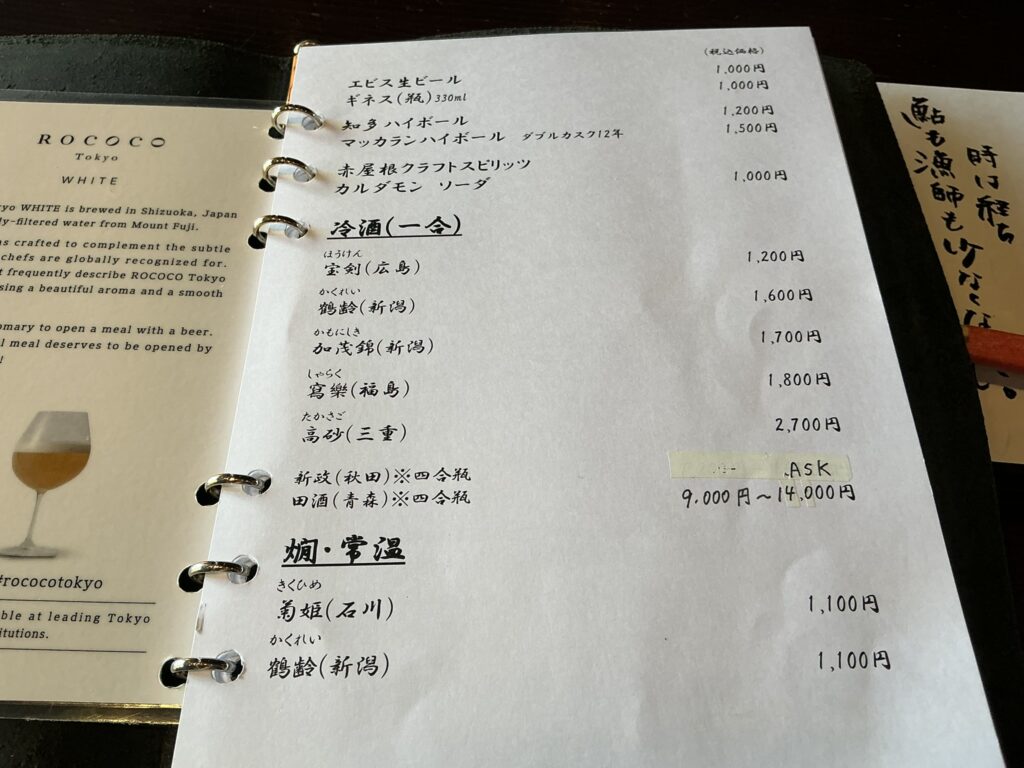 ROCOCO
Tokyo
WHITE
yo WHITE is brewed in Shizuoka, Japan
ly-filtered water from Mount Fuji.
as crafted to complement the subtle
chefs are globally recognized for.
t frequently describe ROCOCO Tokyo
sing a beautiful aroma and a smooth
omary to open a meal with a beer.
l meal deserves to be opened by
!
#rococotokyo
ble at leading Tokyo
itutions.
(税込価格)
エビス生ビール 1,000円
ギネス(瓶)330ml 1,000円
知多ハイボール 1,200円
マッカランハイボール ダブルカスク12年 1,500円
赤屋根クラフトスピリッツ
カルダモン ソーダ 1,000円
冷酒(一合)
ほうけん
宝剣(広島) 1,200円
かくれい
鶴齢(新潟) 1,600円
かもにしき
加茂錦(新潟) 1,700円
しゃらく
寫樂(福島) 1,800円
たかさご
高砂(三重) 2,700円
新政(秋田)※四合瓶 ASK
田酒(青森)※四合瓶 9.000円～14,000円
燗・常温
きくひめ
菊姫(石川) 1,100円
かくれい
鶴齢(新潟) 1,100円
時は経ち
鮎も漁師も